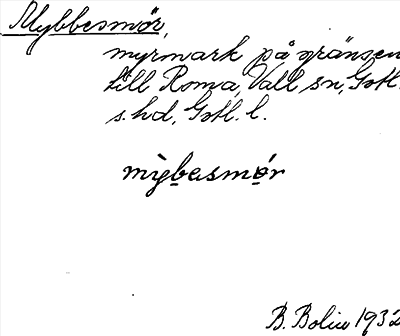 Mybbesmör,
myrmark på gränsen
till Roma, Vall sn, Gotl.
s. hd, Gotl. l.
mỳbasmör
B. Bolin 1932